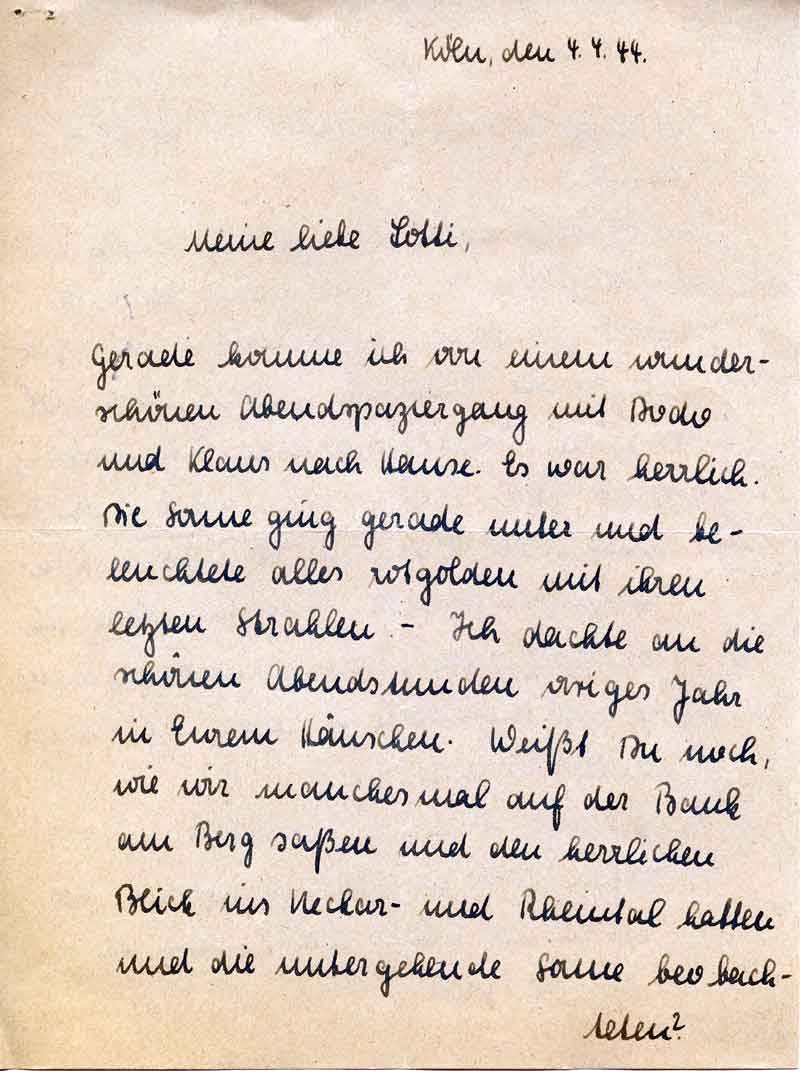 Köln, den 4.4.44.
Meine liebe Lotti,
Gerade komme ich von einem wunder-
schönen Abendspaziergang mit Bodo
und Klaus nach Hause. Es war herrlich.
Die Sonne ging gerade unter und be-
leuchtete alles rotgolden mit ihren
letzten Strahlen. - Ich dachte an die
schönen Abendstunden voriges Jahr
in Eurem Häuschen. Weißt Du noch,
wie wir manchesmal auf der Bank
am Berg saßen und den herrlichen
Blick ins Neckar- und Rheintal hatten
und die untergehende Sonne beobach-
teten?